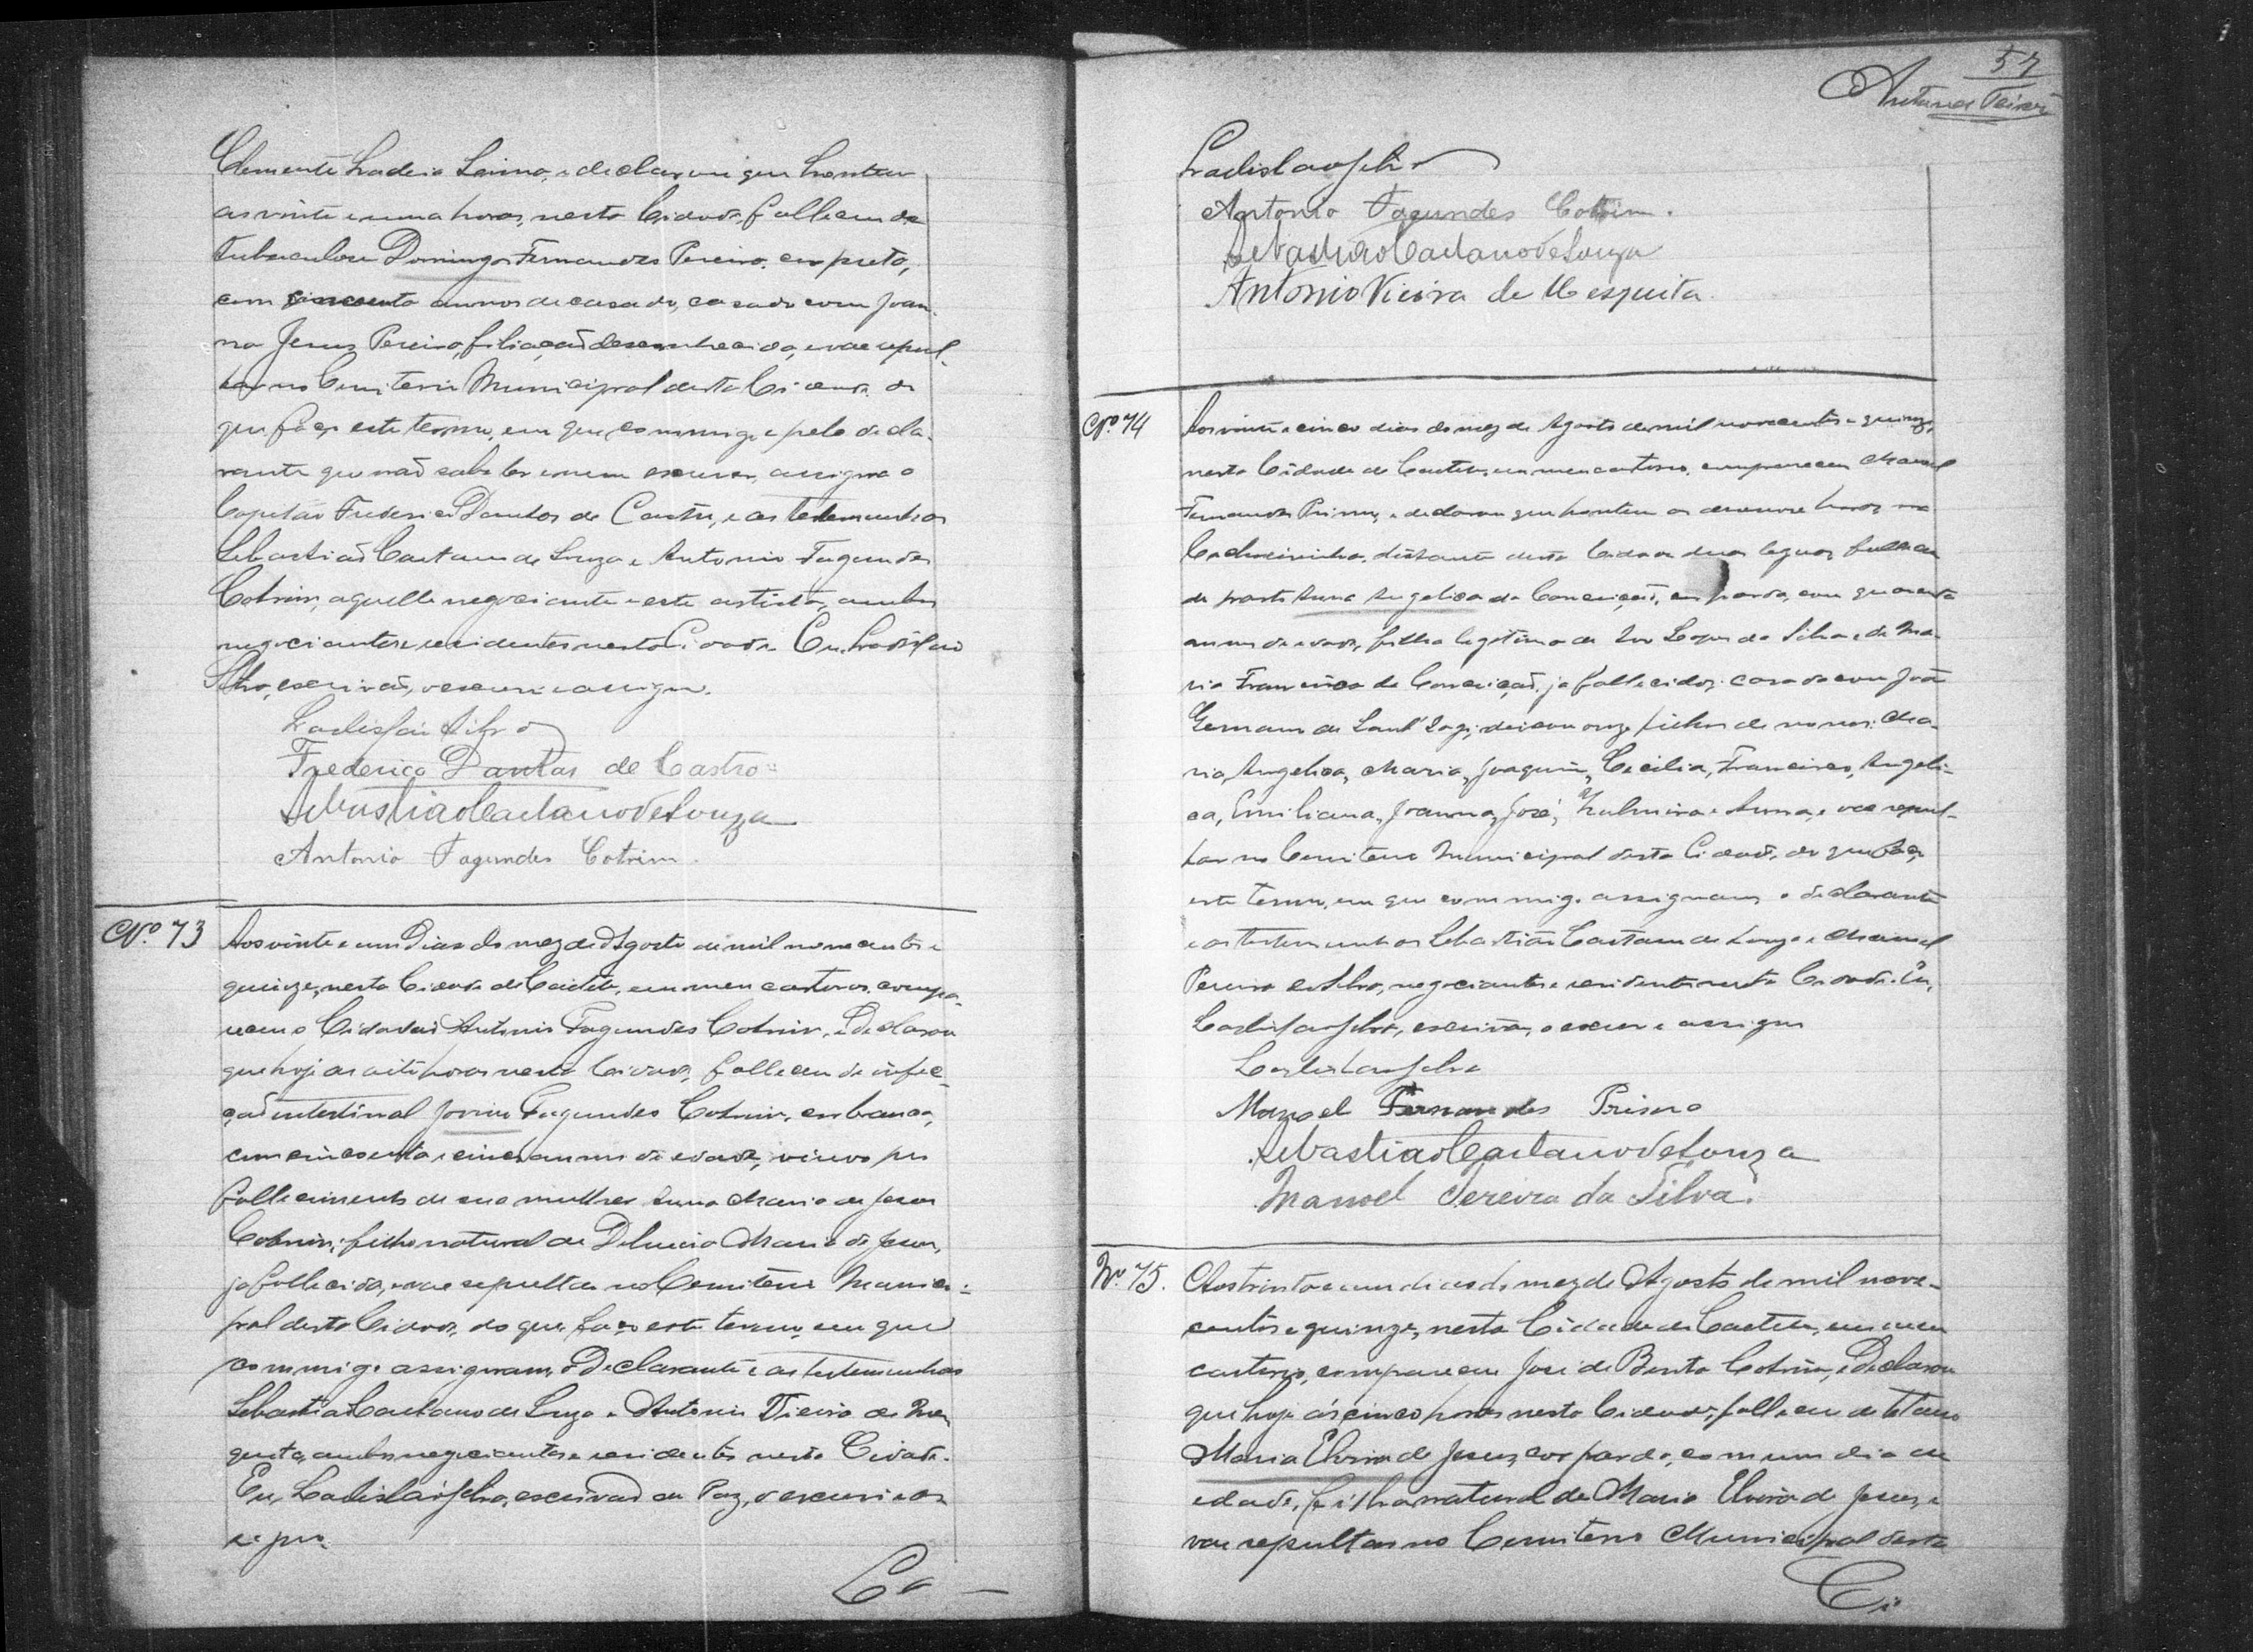 Clemente Ladeia Lirino, e declarou que hontem
as vinte e uma horas, nesta Cidade, falleceu de
tuberculose Domingos Fernandes Pereira, cor preta,
com cincoenta annos de casado, casado com Joan-
na Jesus Pereira, filiação desconhecida, e vae sepul-
tar no Cemiterio Municipal desta Cidade, do
que faço este termo, em que commigo e pelo decla-
rante que não sabe ler e nem escrever, assigna o
Capitão Frederico Dantas de Castro, e as testemunhas
Sebastião Caetano de Souza e Antonio Fagundes
Cotrim, aquelle negociante e este artista, ambos
negociantes e residentes nesta Cidade. Eu, Ladislau
Silva, escrivão, o escrevi e assigno.
Ladislau Silva
Frederico Dantas de Castro
Sebastião Caetano de Souza
Antonio Fagundes Cotrim.
Nº 73 Aos vinte e um dias do mez de Agosto de mil novecentos e
quinze, nesta Cidade de Caetité, em meu cartorio, compa-
receu o Cidadão Antonio Fagundes Cotrim, e declarou
que hoje as oito horas nesta Cidade, falleceu de infec-
ção intestinal Jovino Fagundes Cotrim, cor branca,
com cincoenta e cinco annos de edade, viuvo por
fallecimento de sua mulher Anna Maria de Jesus
Cotrim, filho natural de Maria de Jesus,
ja fallecida, e vae sepultar no Cemiterio Munici-
pal desta Cidade, do que faço este termo, em que
commigo assignam, o declarante e as testemunhas
Sebastião Caetano de Souza e Antonio Vieira de Mes-
quita, ambos negociantes e residentes nesta Cidade.
Eu, Ladislau Silva, escrivão de Paz, o escrevi e as-
signo.
La
57
Antunes Teixeira
Ladislau Silva
Antonio Fagundes Cotrim.
Sebastião Caetano de Souza
Antonio Vieira de Mesquita.
Nº 74 Aos vinte e cinco dias do mez de Agosto de mil novecentos e quinze,
nesta Cidade de Caetité, em meu cartorio, compareceu Manoel
Fernandes Primo, e declarou que hontem as dezenove horas, na
Cachoeirinha, distante desta Cidade duas leguas, falleceu
de parto Anna Angelica da Conceição, cor parda, com quarenta
annos de edade, filha legitima de Lopes da Silva e de Ma-
ria Francisca da Conceição, ja fallecidos; casada com João
Germano de Sant'; deixou onze filhos de nomes: Ma-
ria, Angelica, Maria, Joaquim, Cecilia, Francisco, Angeli-
ca, Emiliana, Joanna, José, Zulmira e Anna, e vae sepul-
tar no Cemiterio Municipal desta Cidade, do que faço
este termo, em que commigo assignam, o declarante
e as testemunhas Sebastião Caetano de Souza e Manoel
Pereira da Silva, negociantes e residentes nesta Cidade. Eu,
Ladislau Silva, escrivão, o escrevi e assigno
Ladislau Silva
Manoel Fernandes Primo
Sebastião Caetano de Souza
Manoel Pereira da Silva.
Nº 75. Aos trinta e um dias do mez de Agosto de mil nove-
centos e quinze, nesta Cidade de Caetité, em meu
cartorio, compareceu José de Bonta Cotrim, e declarou
que hoje ás cinco horas nesta Cidade, falleceu de tetano
Maria Elvira de Jesus, cor parda, com um dia de
edade, filha natural de Maria Elvira de Jesus, e
vae sepultar no Cemiterio Municipal desta
Ci